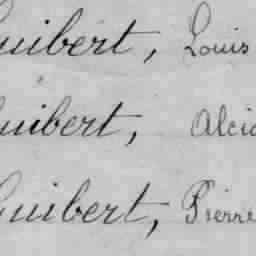 Guibert, Louis
Guibert, Alcid
Guibert, Pierre